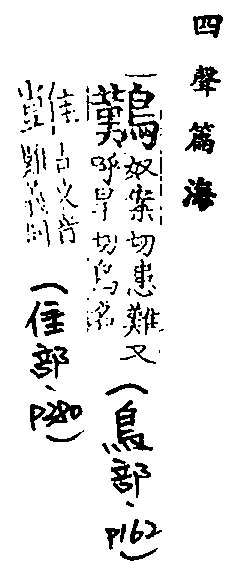 四聲篇海
奴案切患難又
呼旱切鳥名
(鳥部、p162)
古文音
難義同
(隹部、p380)